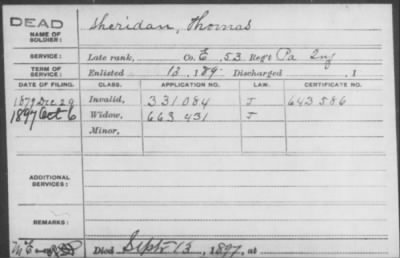 DEAD
NAME OF SOLDIER: Sheridan, Thomas
SERVICE: Late rank, Co. E, 53 Reg't Pa Inf
TERM OF SERVICE: Enlisted , 189 Discharged , 1
DATE OF FILING. CLASS. APPLICATION NO. LAW. CERTIFICATE NO.
1879 Dec 29 Invalid, 331084 J 643586
1897 Oct 6 Widow, 663 431 J
Minor,
ADDITIONAL SERVICES:
REMARKS:
Died Sept 13, 1897, at